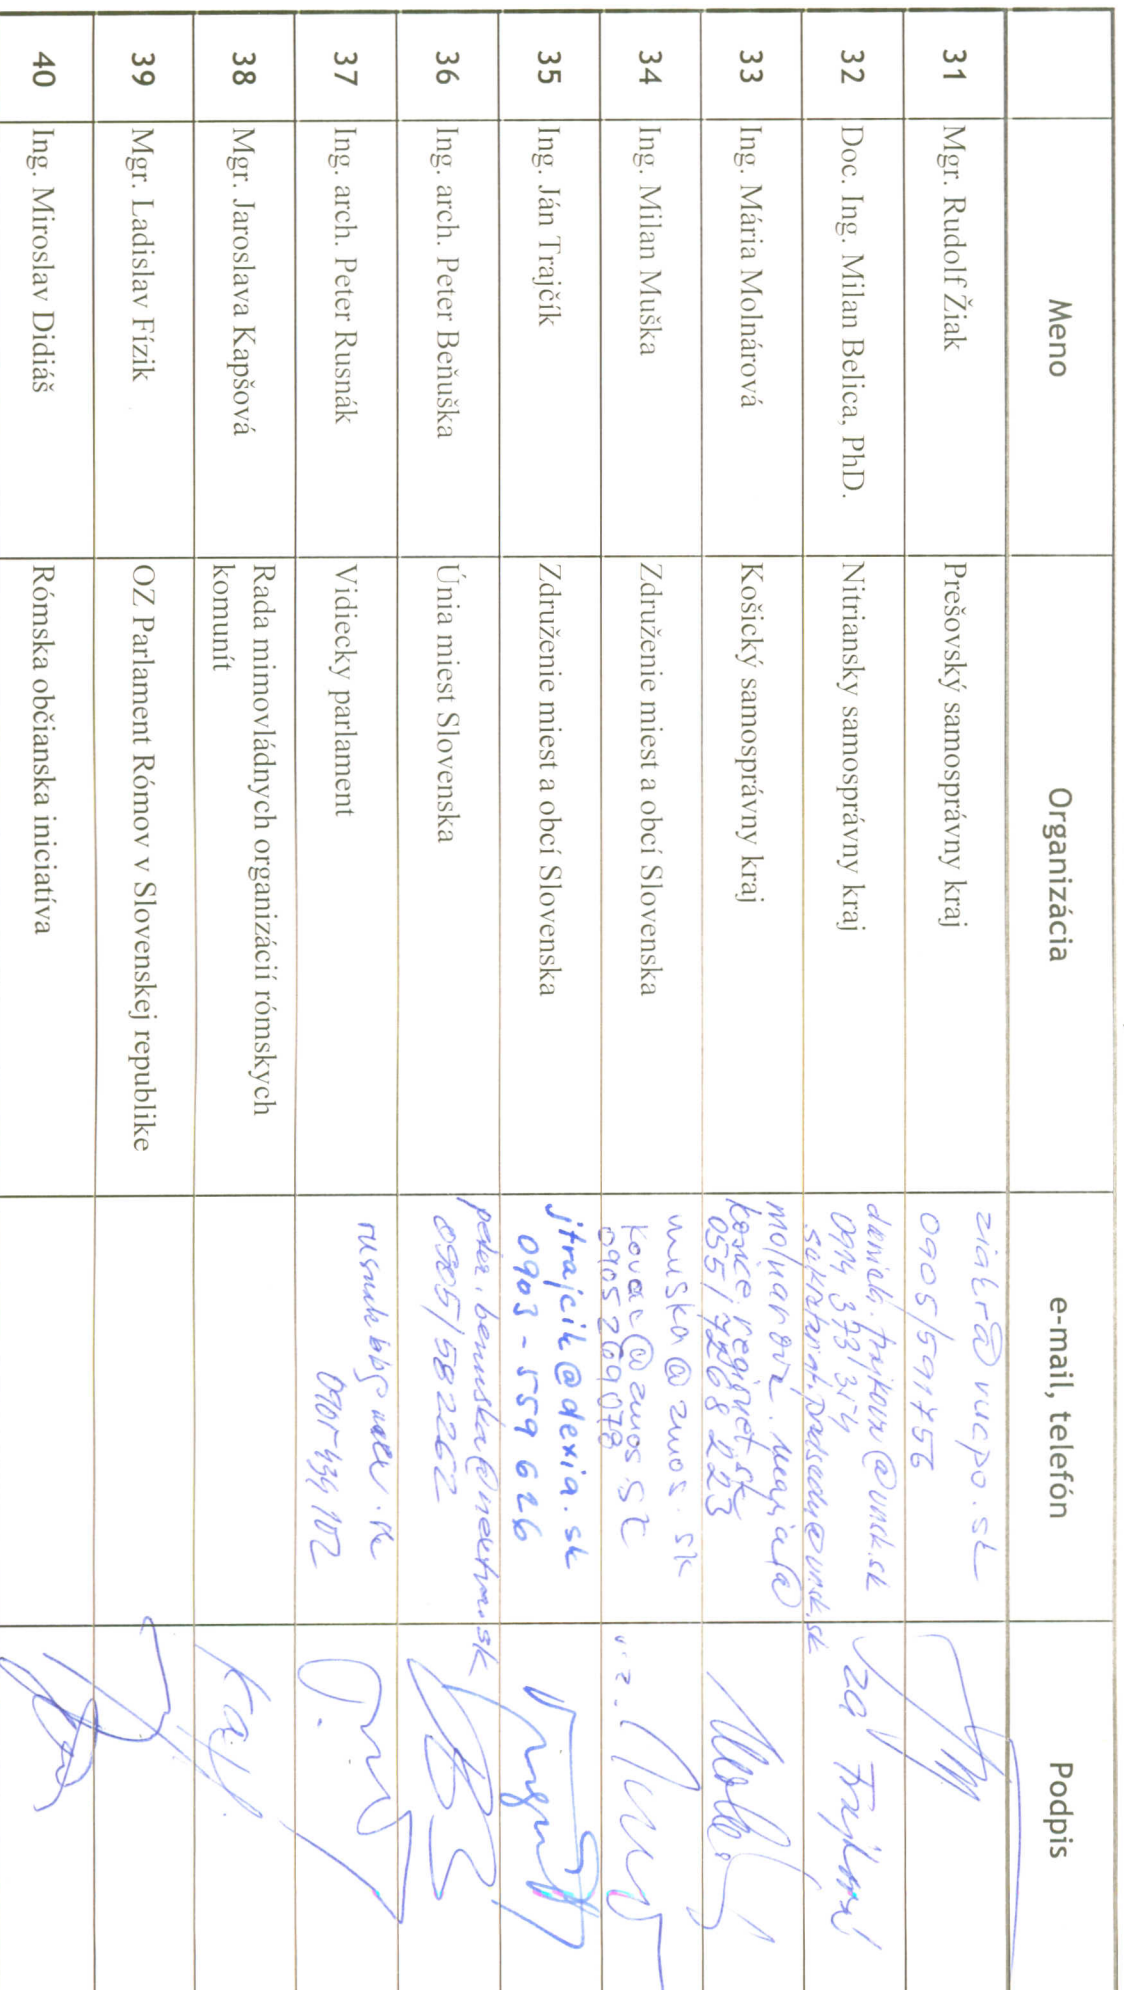 Meno Organizácia e-mail, telefón Podpis
31 Mgr. Rudolf Žiak Prešovský samosprávny kraj ziakr@vucpo.sk
0905/591756
32 Doc. Ing. Milan Belica, PhD. Nitriansky samosprávny kraj
0914 373/354
33 Ing. Mária Molnárová Košický samosprávny kraj molnarova.maria@
kosice.regionet.sk
055/7268223
34 Ing. Milan Muška Združenie miest a obcí Slovenska muska@zmos.sk
kovac@zmos.sk
0905209078
35 Ing. Ján Trajčík Združenie miest a obcí Slovenska jtrajcik@dexia.sk
0903-559 626
36 Ing. arch. Peter Beňuška Únia miest Slovenska
0905/582262
37 Ing. arch. Peter Rusnák Vidiecky parlament
38 Mgr. Jaroslava Kapšová Rada mimovládnych organizácií rómskych
komunít
39 Mgr. Ladislav Fízik OZ Parlament Rómov v Slovenskej republike
40 Ing. Miroslav Didiáš Rómska občianska iniciatíva